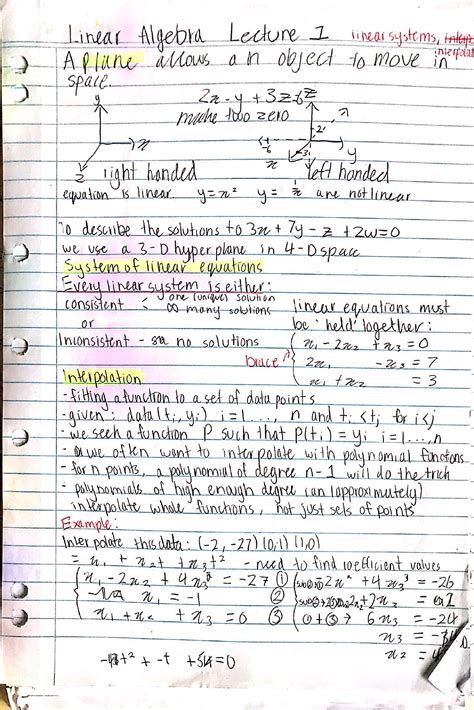 Linear Algebra Lecture 1 linear systems,
A plane allows an object to move in
space.
2x - y + 3z = 6
make two zero
right handed left handed
equation is linear. y = x² y = 1/x are not linear
To describe the solutions to 3x + 7y - z + 2w = 0
we use a 3-D hyperplane in 4-D space
System of linear equations
Every linear system is either:
consistent < one (unique) solution
∞ many solutions
or
Inconsistent - no solutions
linear equations must
be 'held' together:
brace
x₁ - 2x₂ + x₃ = 0
2x₁ - x₃ = 7
x₁ + x₂ = 3
Interpolation
- fitting a function to a set of data points
- given: data (tᵢ, yᵢ) i = 1..., n and tᵢ < tⱼ for i < j
- we seek a function P such that P(tᵢ) = yᵢ i = 1,...,n
- we often want to interpolate with polynomial functions
- for n points, a polynomial of degree n-1 will do the trick
- polynomials of high enough degree can (approximately)
interpolate whole functions, not just sets of points
Example:
Interpolate this data: (-2, -27) (0,1) (1,0)
= x₁ + x₂t + x₃t² - need to find coefficient values
x₁ - 2x₂ + 4x₃ = -27 ①
x₁ = -1 ②
x₁ + x₂ + x₃ = 0 ③
+ 4x₃ = -26
① + ③ → 6x₃ = -24